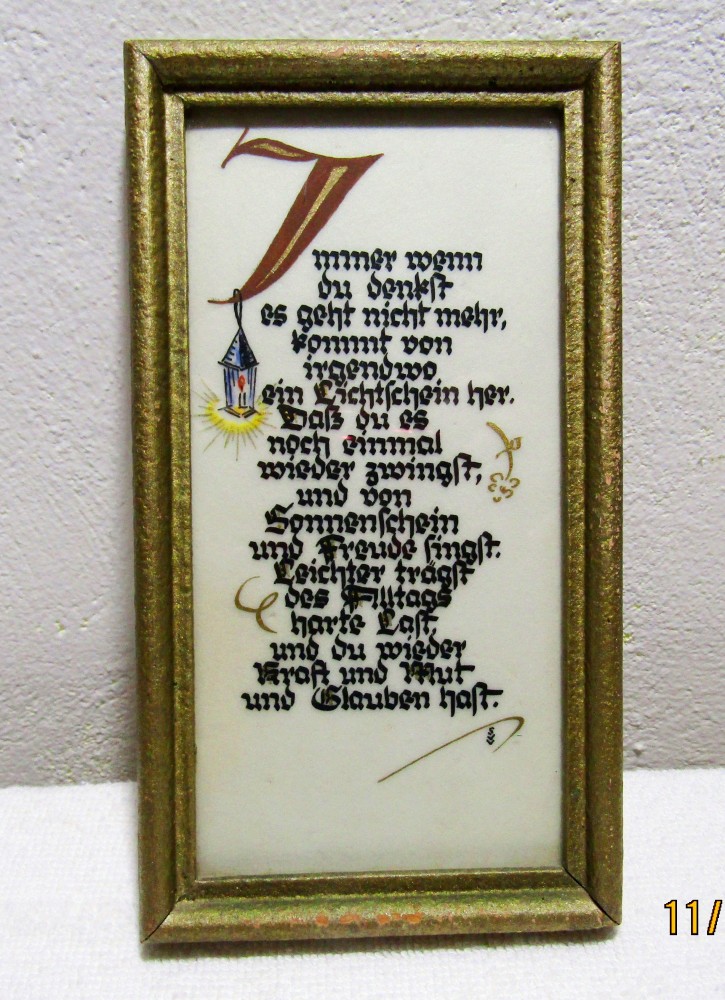 Immer wenn
du denkst
es geht nicht mehr,
kommt von
irgendwo
ein Lichtschein her.
Daß du es
noch einmal
wieder zwingst,
und von
Sonnenschein
und Freude singst.
Leichter trägst
des Alltags
harte Last,
und du wieder
Kraft und Mut
und Glauben hast.
11/